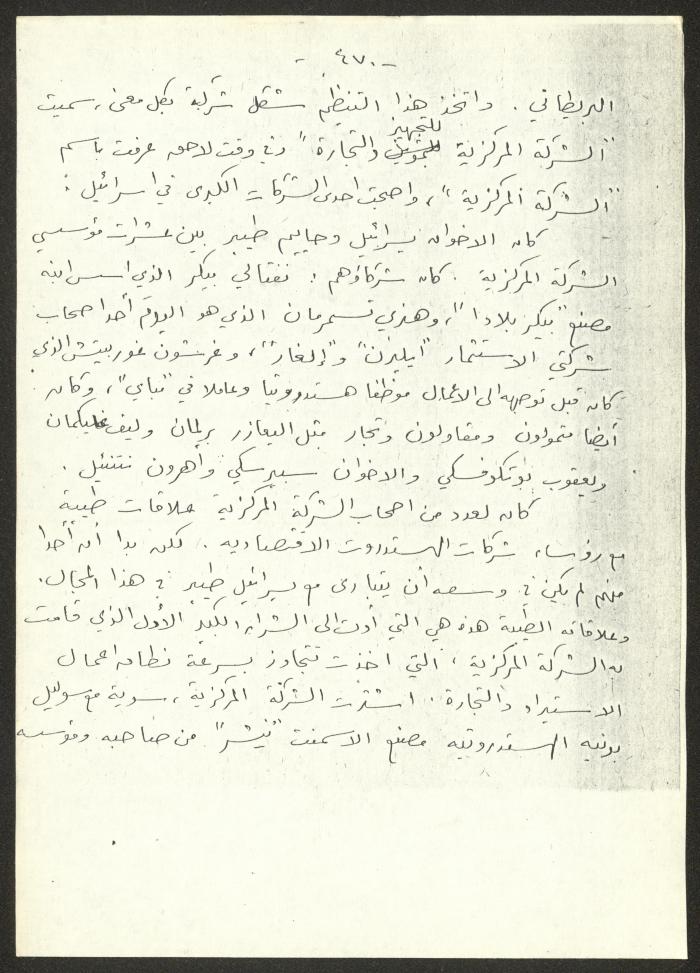 - ٤٧٠ -
البريطاني . واتخذ هذا التنظيم شكل شركة بكل معنى ، سميت
للتجهيز
"الشركة المركزية للتمويل والتجارة" وفي وقت لاحق عرفت باسم
"الشركة المركزية" ، واصبحت احدى الشركات الكبرى في اسرائيل :
كان الاخوان يسرائيل وحاييم طيبر بين عشرات مؤسسي
الشركة المركزية . كان شركاؤهم : نفتالي بيكر الذي اسس ابنه
مصنع "بيكر بلادا" ، وهنري تسمرمان الذي هو اليوم أحد اصحاب
شركتي الاستثمار "ايليرن" و"إلغار" ، وغرشون غوربيتش الذي
كان قبل توجهه الى الاعمال موظفا هستدروتيا وعاملا في "تباي" ، وكان
أيضا متمولون ومقاولون وتجار مثل اليعازر برلمان وليف غليكمان
ويعقوب بوتكوفسكي والاخوان سبيرسكي وأهرون نتنئيل .
كان لعدد من اصحاب الشركة المركزية علاقات طيبة
مع رؤساء شركات الهستدروت الاقتصادية . لكن بدا أن أحدا
منهم لم يكن في وسعه أن يتبارى مع يسرائيل طيبر في هذا المجال .
وعلاقاته الطيبة هذه هي التي أدت الى الشراء الكبير الأول الذي قامت
به الشركة المركزية ، التي اخذت تتجاوز بسرعة نطاق اعمال
الاستيراد والتجارة . اشترت الشركة المركزية ، سوية مع سوليل
بونيه الهستدروتيه مصنع الاسمنت "نيشر" من صاحبه ومؤسسه